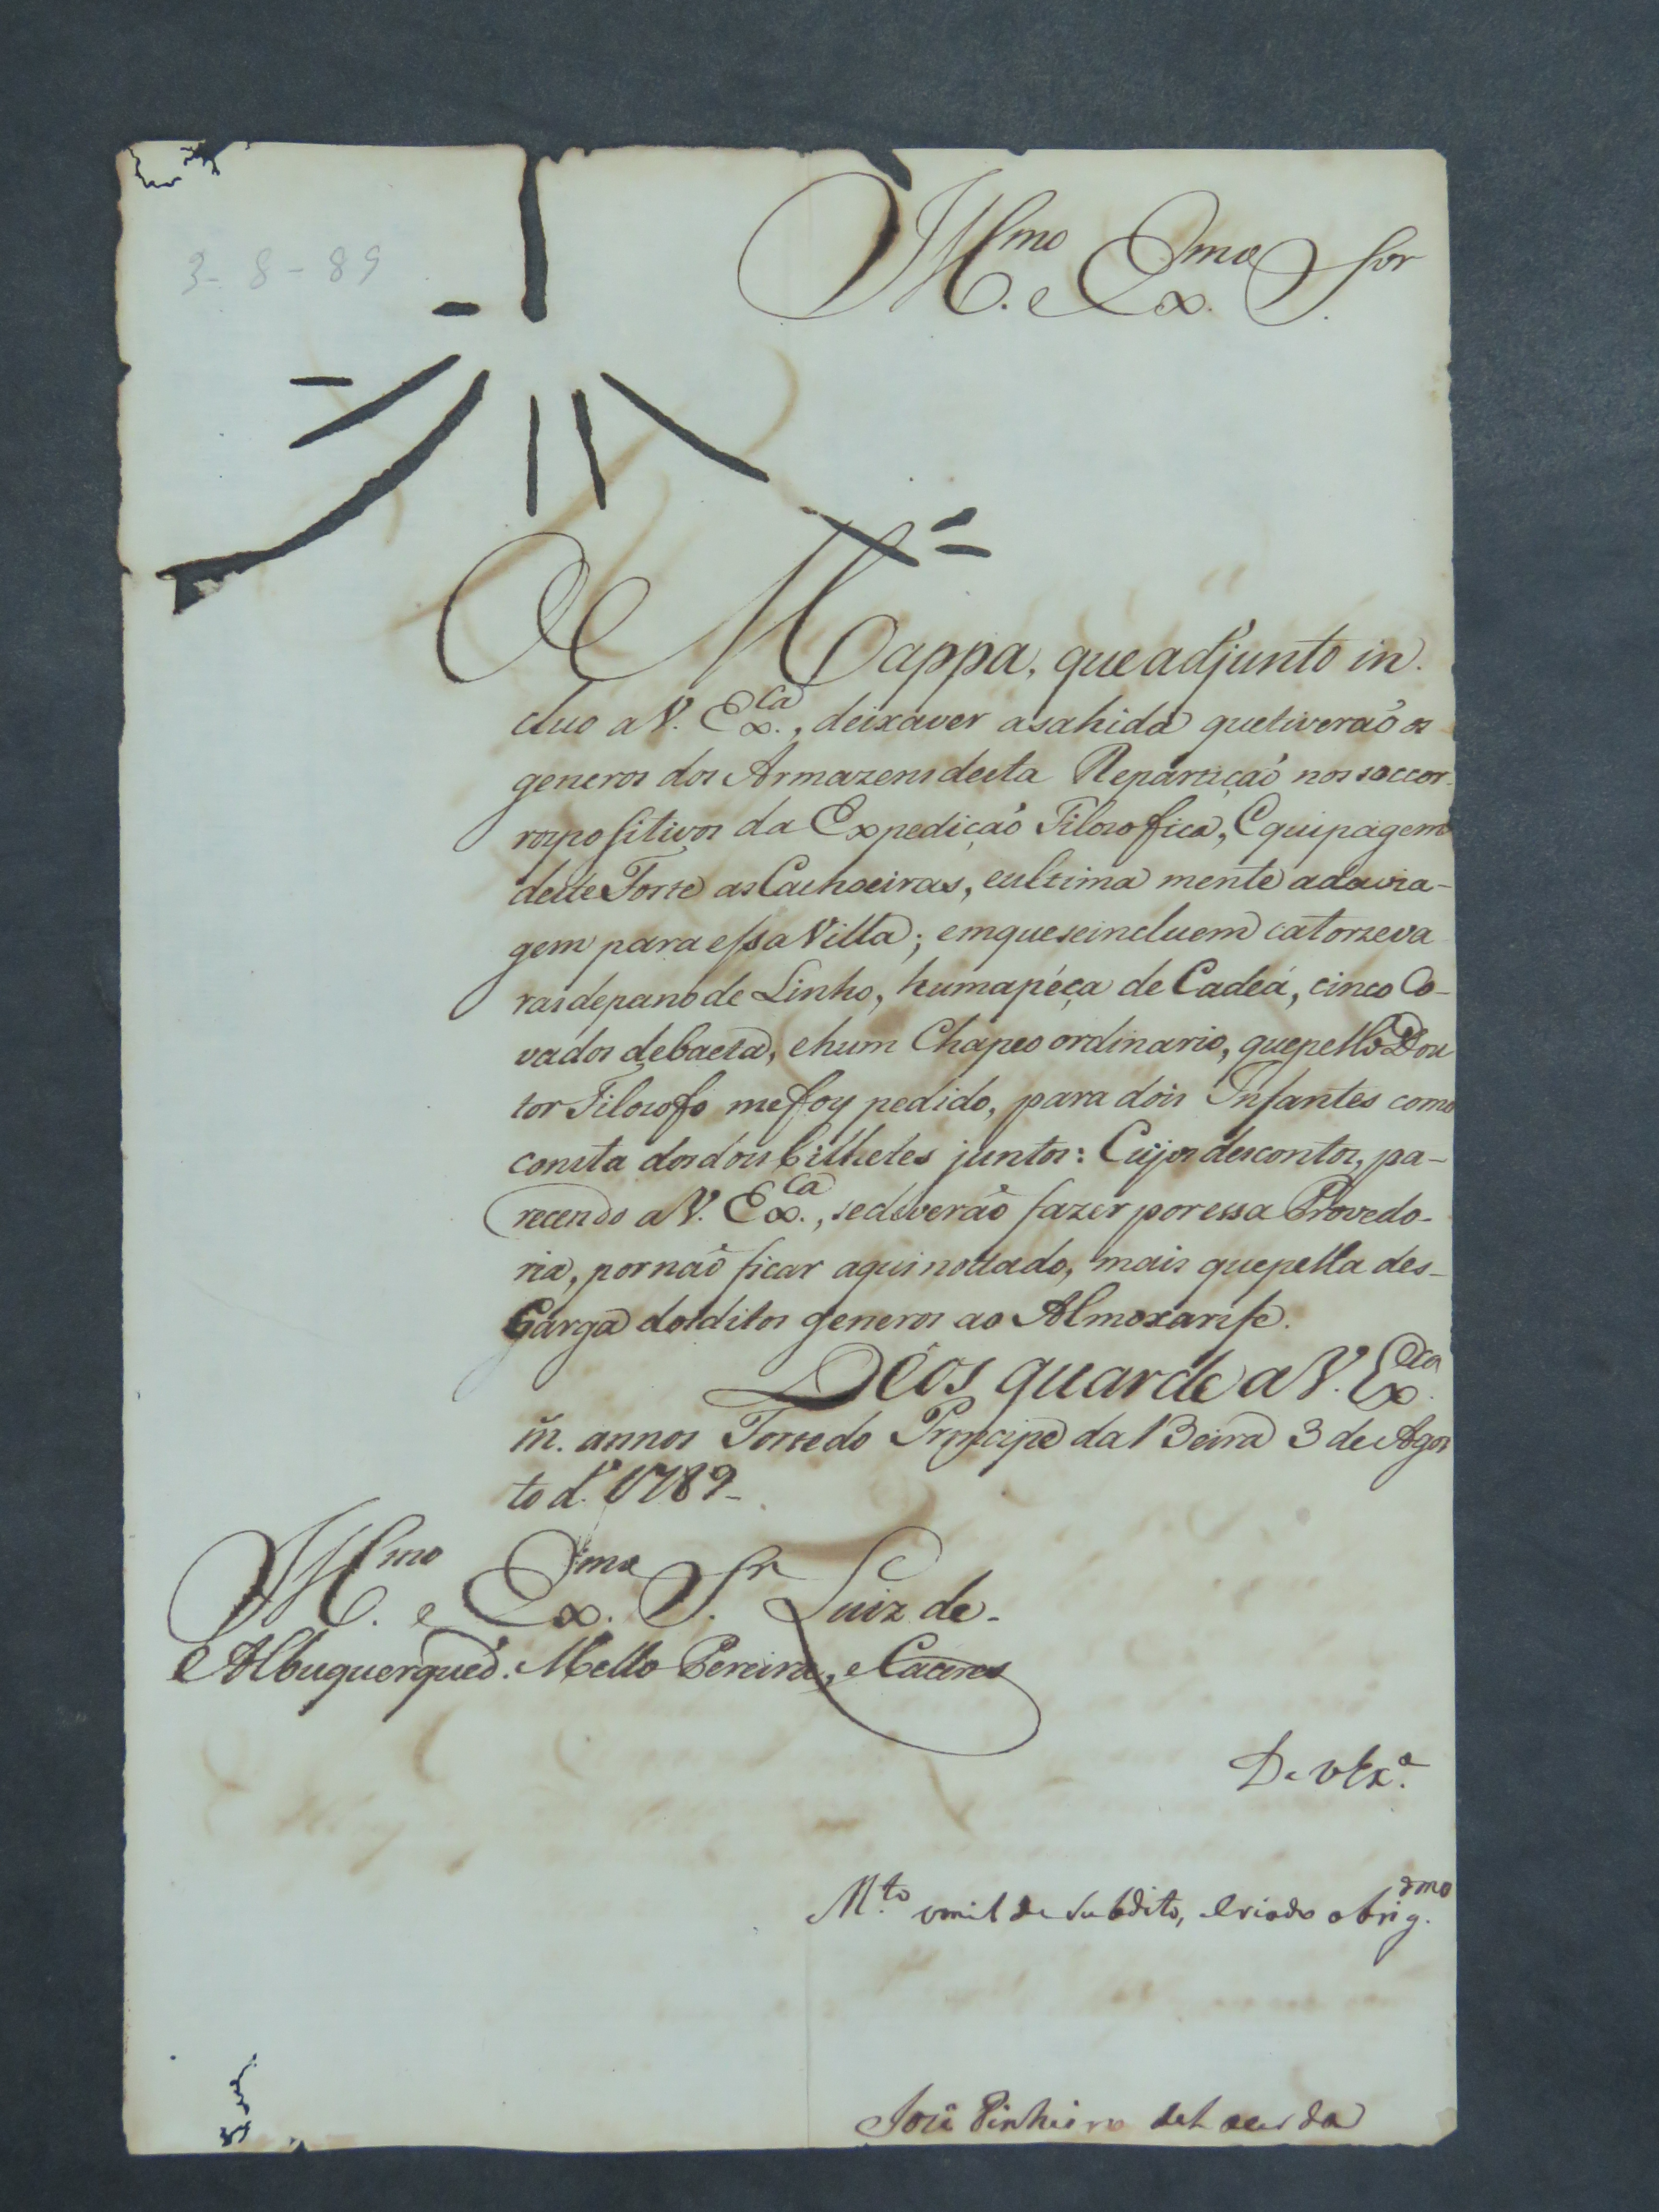 3-8-89
Ill.mo e Ex.mo S.or
O Mappa, que adjunto in-
cluo a V. Ex.ca, deixa ver a sahida que tiveraõ os
generos dos Armazens desta Repartiçaõ nos soccor-
ros positivos da Expediçaõ Filosofica, Equipagem
deste Forte as Cachoeiras, e ultima mente a da via-
gem para essa Villa; em que se incluem catorze va
ras de pano de Linho, huma péça de Cadeá, cinco Co-
vados de baeta, e hum Chapeo ordinario, que pello Dou
tor Filosofo me foy pedido, para dois Infantes como
consta dos dois bilhetes juntos: Cujos descontos, pa-
recendo a V. Ex.ca, se deveraõ fazer por essa Provedo-
ria, por naõ ficar aqui nottado, mais que pella des-
Carga dos ditos generos ao Almoxarife.
Deos guarde a V. Ex.ca
m̃. annos Forte do Principe da Beira 3 de Agos
to d.e 1789-
Ill.mo e Ex.mo S.r Luiz de-
Albuquerque d. Mello Pereira, e Caceres
De V Ex.a
M.to umilde Subdito, e criado obrig.dmo
José Pinheiro de Lacerda